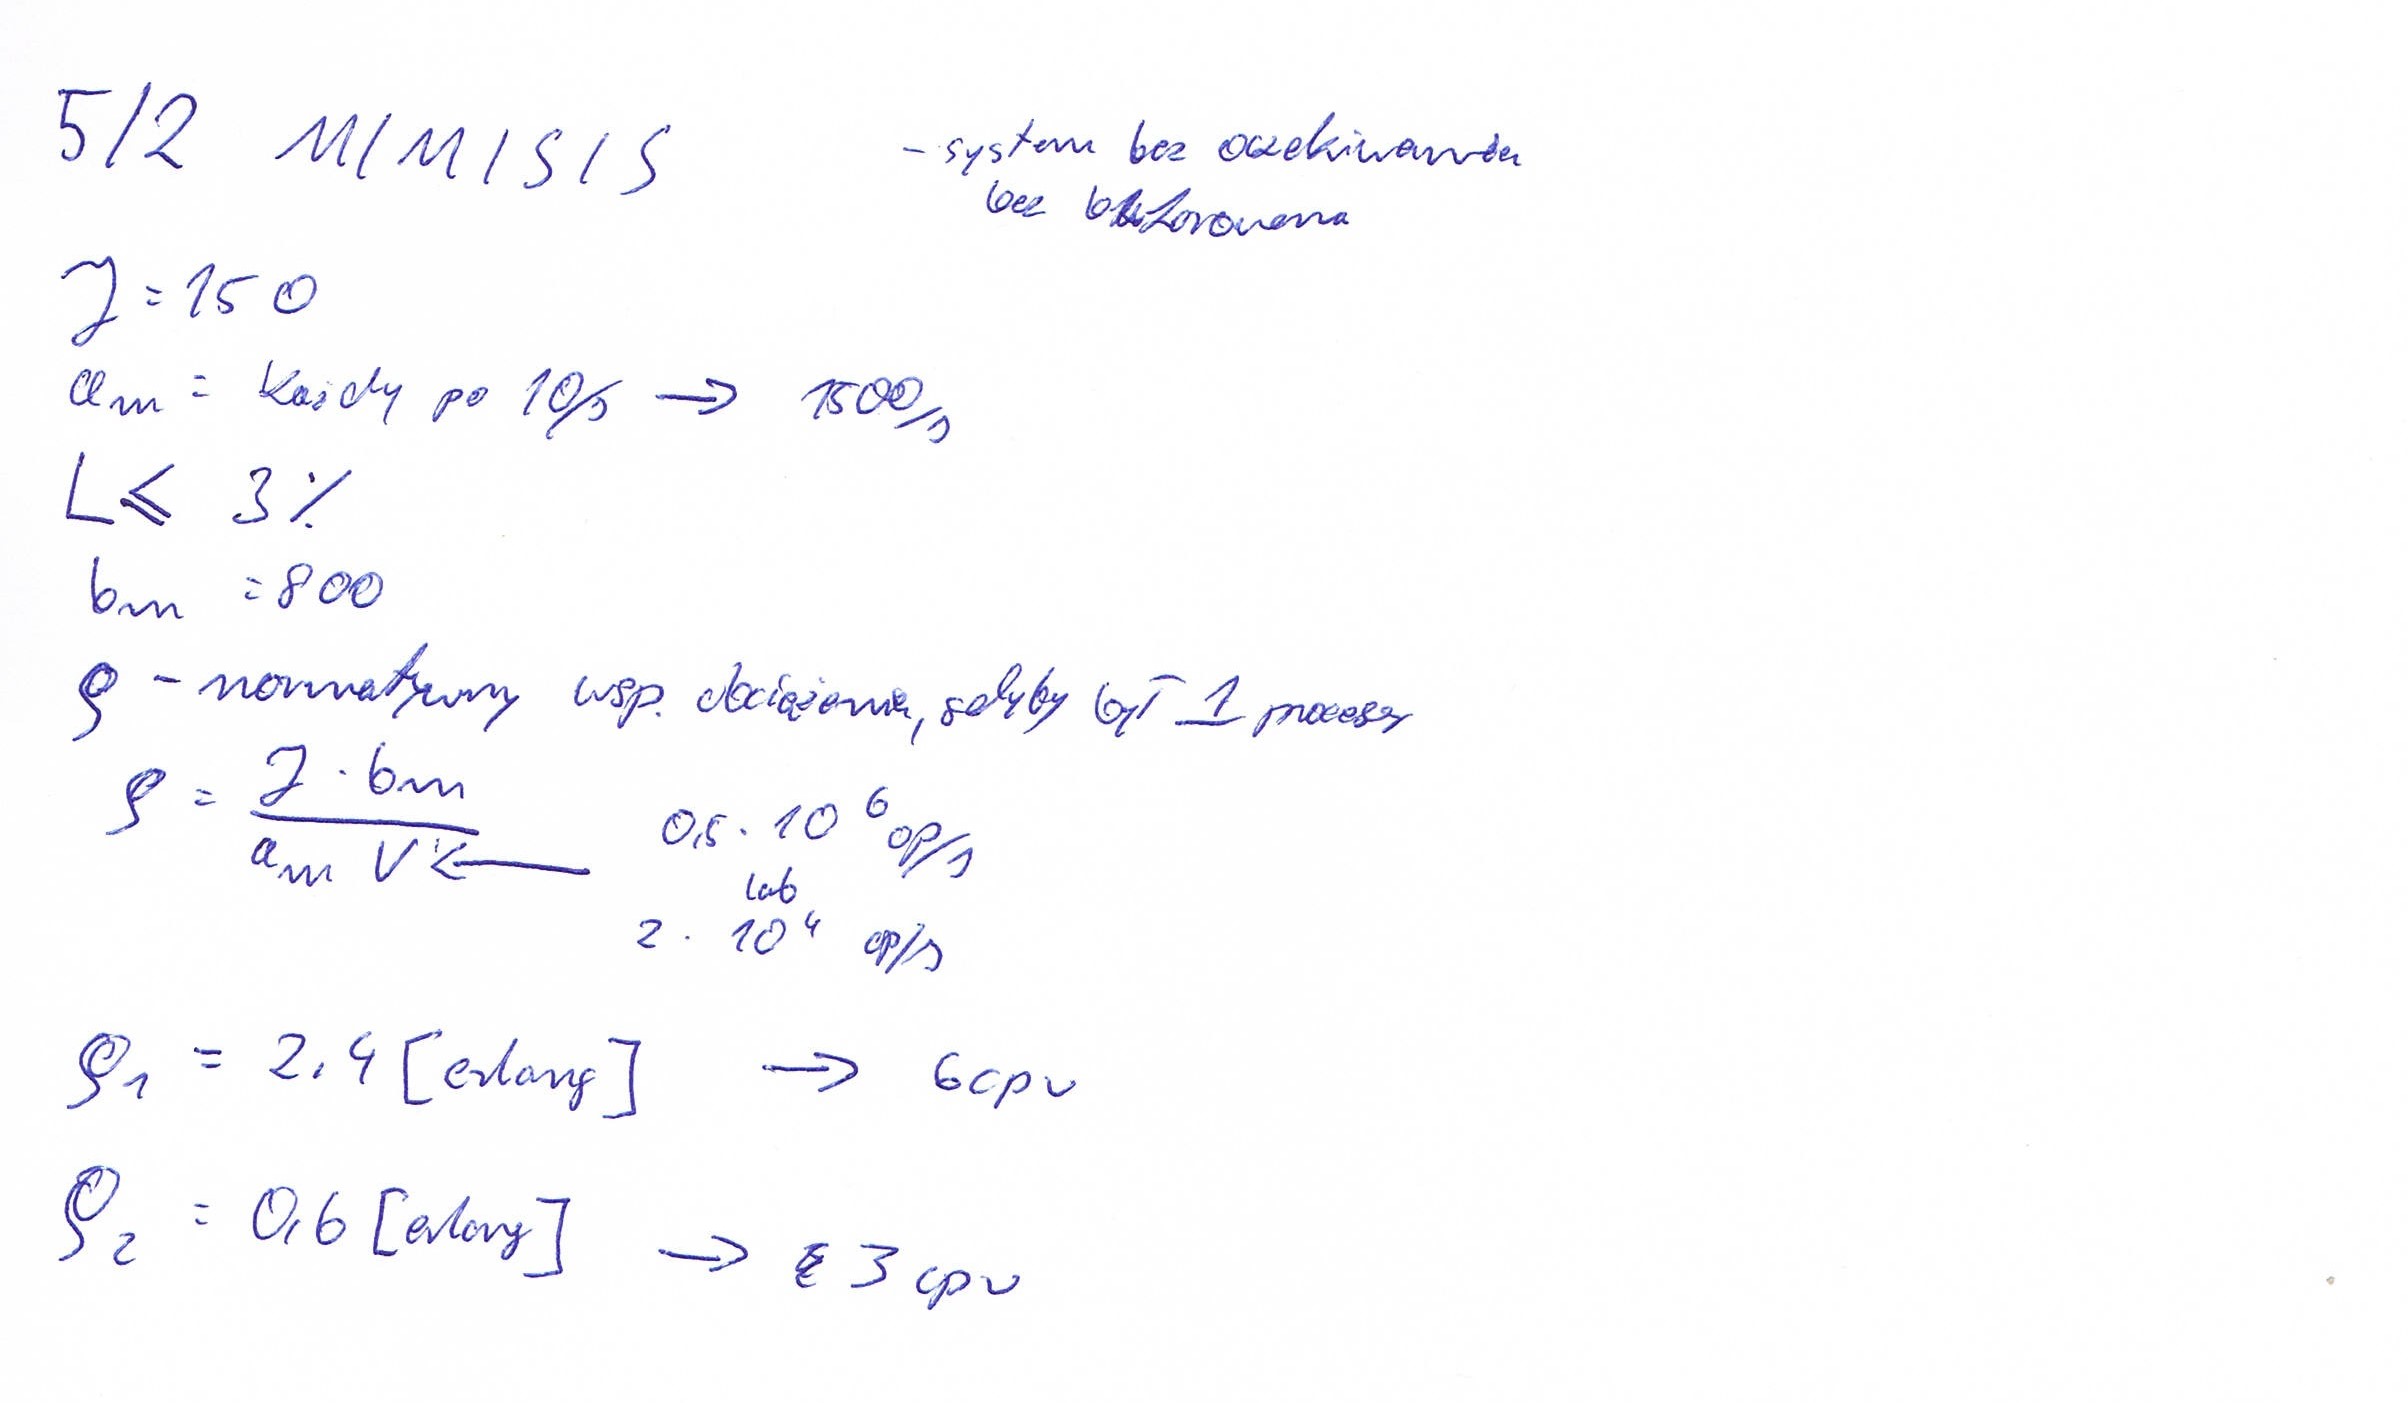 5/2 M/M/S/S - system bez oczekiwania
bez buforowania
J = 150
am = Każdy po 10/s → 1500/s
L ≤ 3%
bm = 800
ρ - normatywny wsp. obciążenia, gdyby był 1 procesor
ρ = J · bm / am V ← 0,5 · 10⁶ op/s
lub
2 · 10⁴ op/s
ρ1 = 2,4 [erlang] → 6 cpu
ρ2 = 0,6 [erlang] → 3 cpu